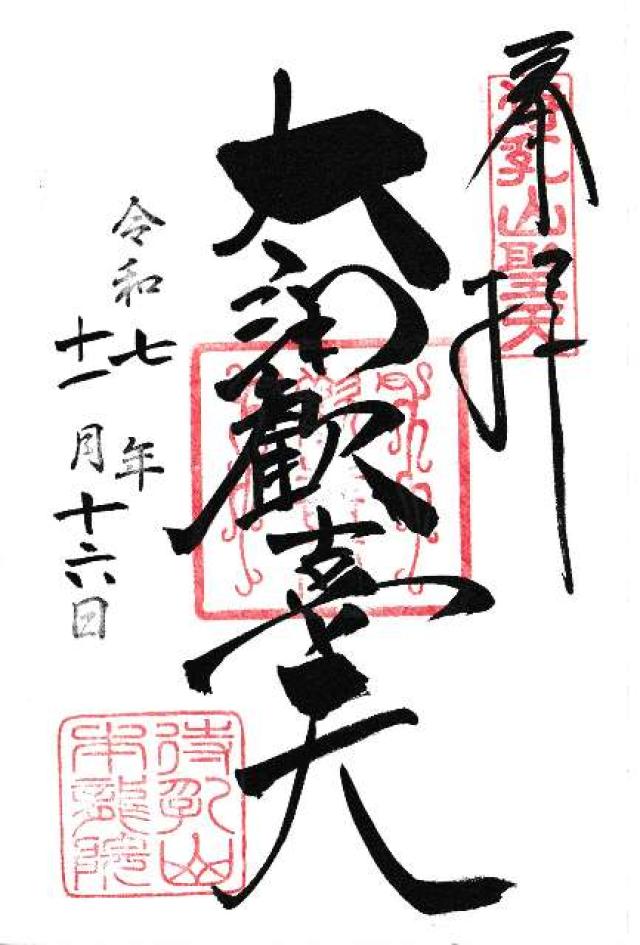 奉拝
待乳山聖天
大聖歓喜天
令和七年
十一月十六日
待乳山
本龍院